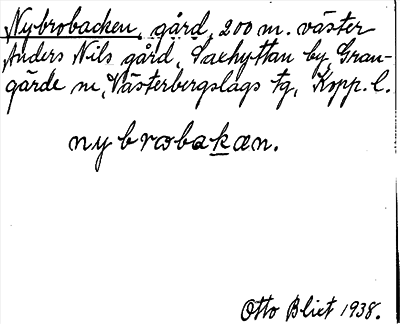 Nybrobacken, gård, 200 m. väster
Anders Nils gård, Saxhyttan by, Gran-
gärde sn, Västerbergslags tg, Kopp. l.
nybrobakan.
Otto Blixt 1938.